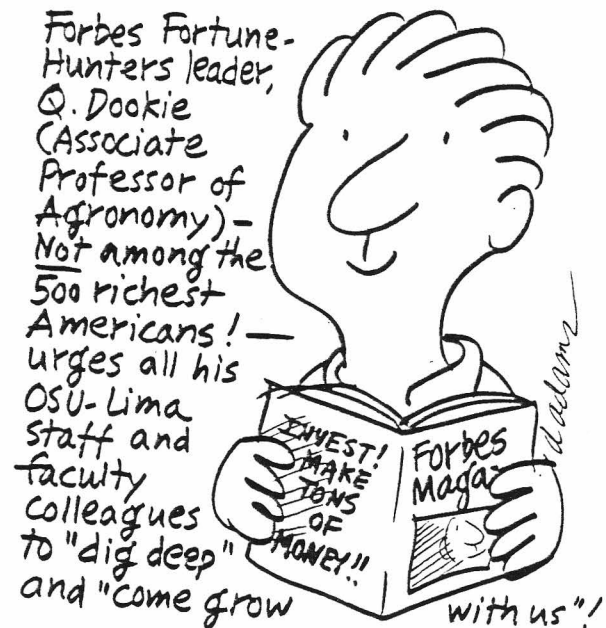 Forbes Fortune-
Hunters leader,
Q. Dookie
(Associate
Professor of
Agronomy)—
Not among the
500 richest
Americans!—
urges all his
OSU-Lima
staff and
faculty
colleagues
to "dig deep"
and "come grow with us"!
INVEST!
MAKE
TONS
OF
MONEY!!
Forbes
Maga
dadams